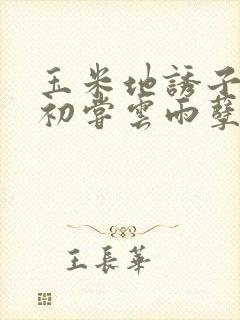 玉米地誘子
初嘗雲雨孽
王長華